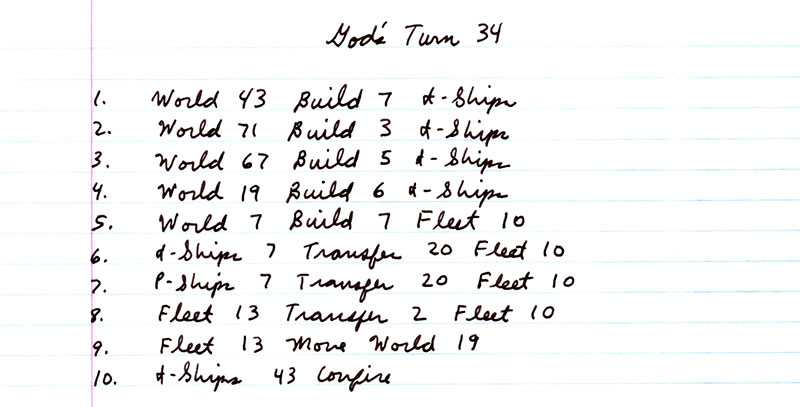 God's Turn 34
1. World 43 Build 7 I-Ships
2. World 71 Build 3 I-Ships
3. World 67 Build 5 I-Ships
4. World 19 Build 6 I-Ships
5. World 7 Build 7 Fleet 10
6. I-Ships 7 Transfer 20 Fleet 10
7. P-Ships 7 Transfer 20 Fleet 10
8. Fleet 13 Transfer 2 Fleet 10
9. Fleet 13 Move World 19
10. I-Ships 43 Confire